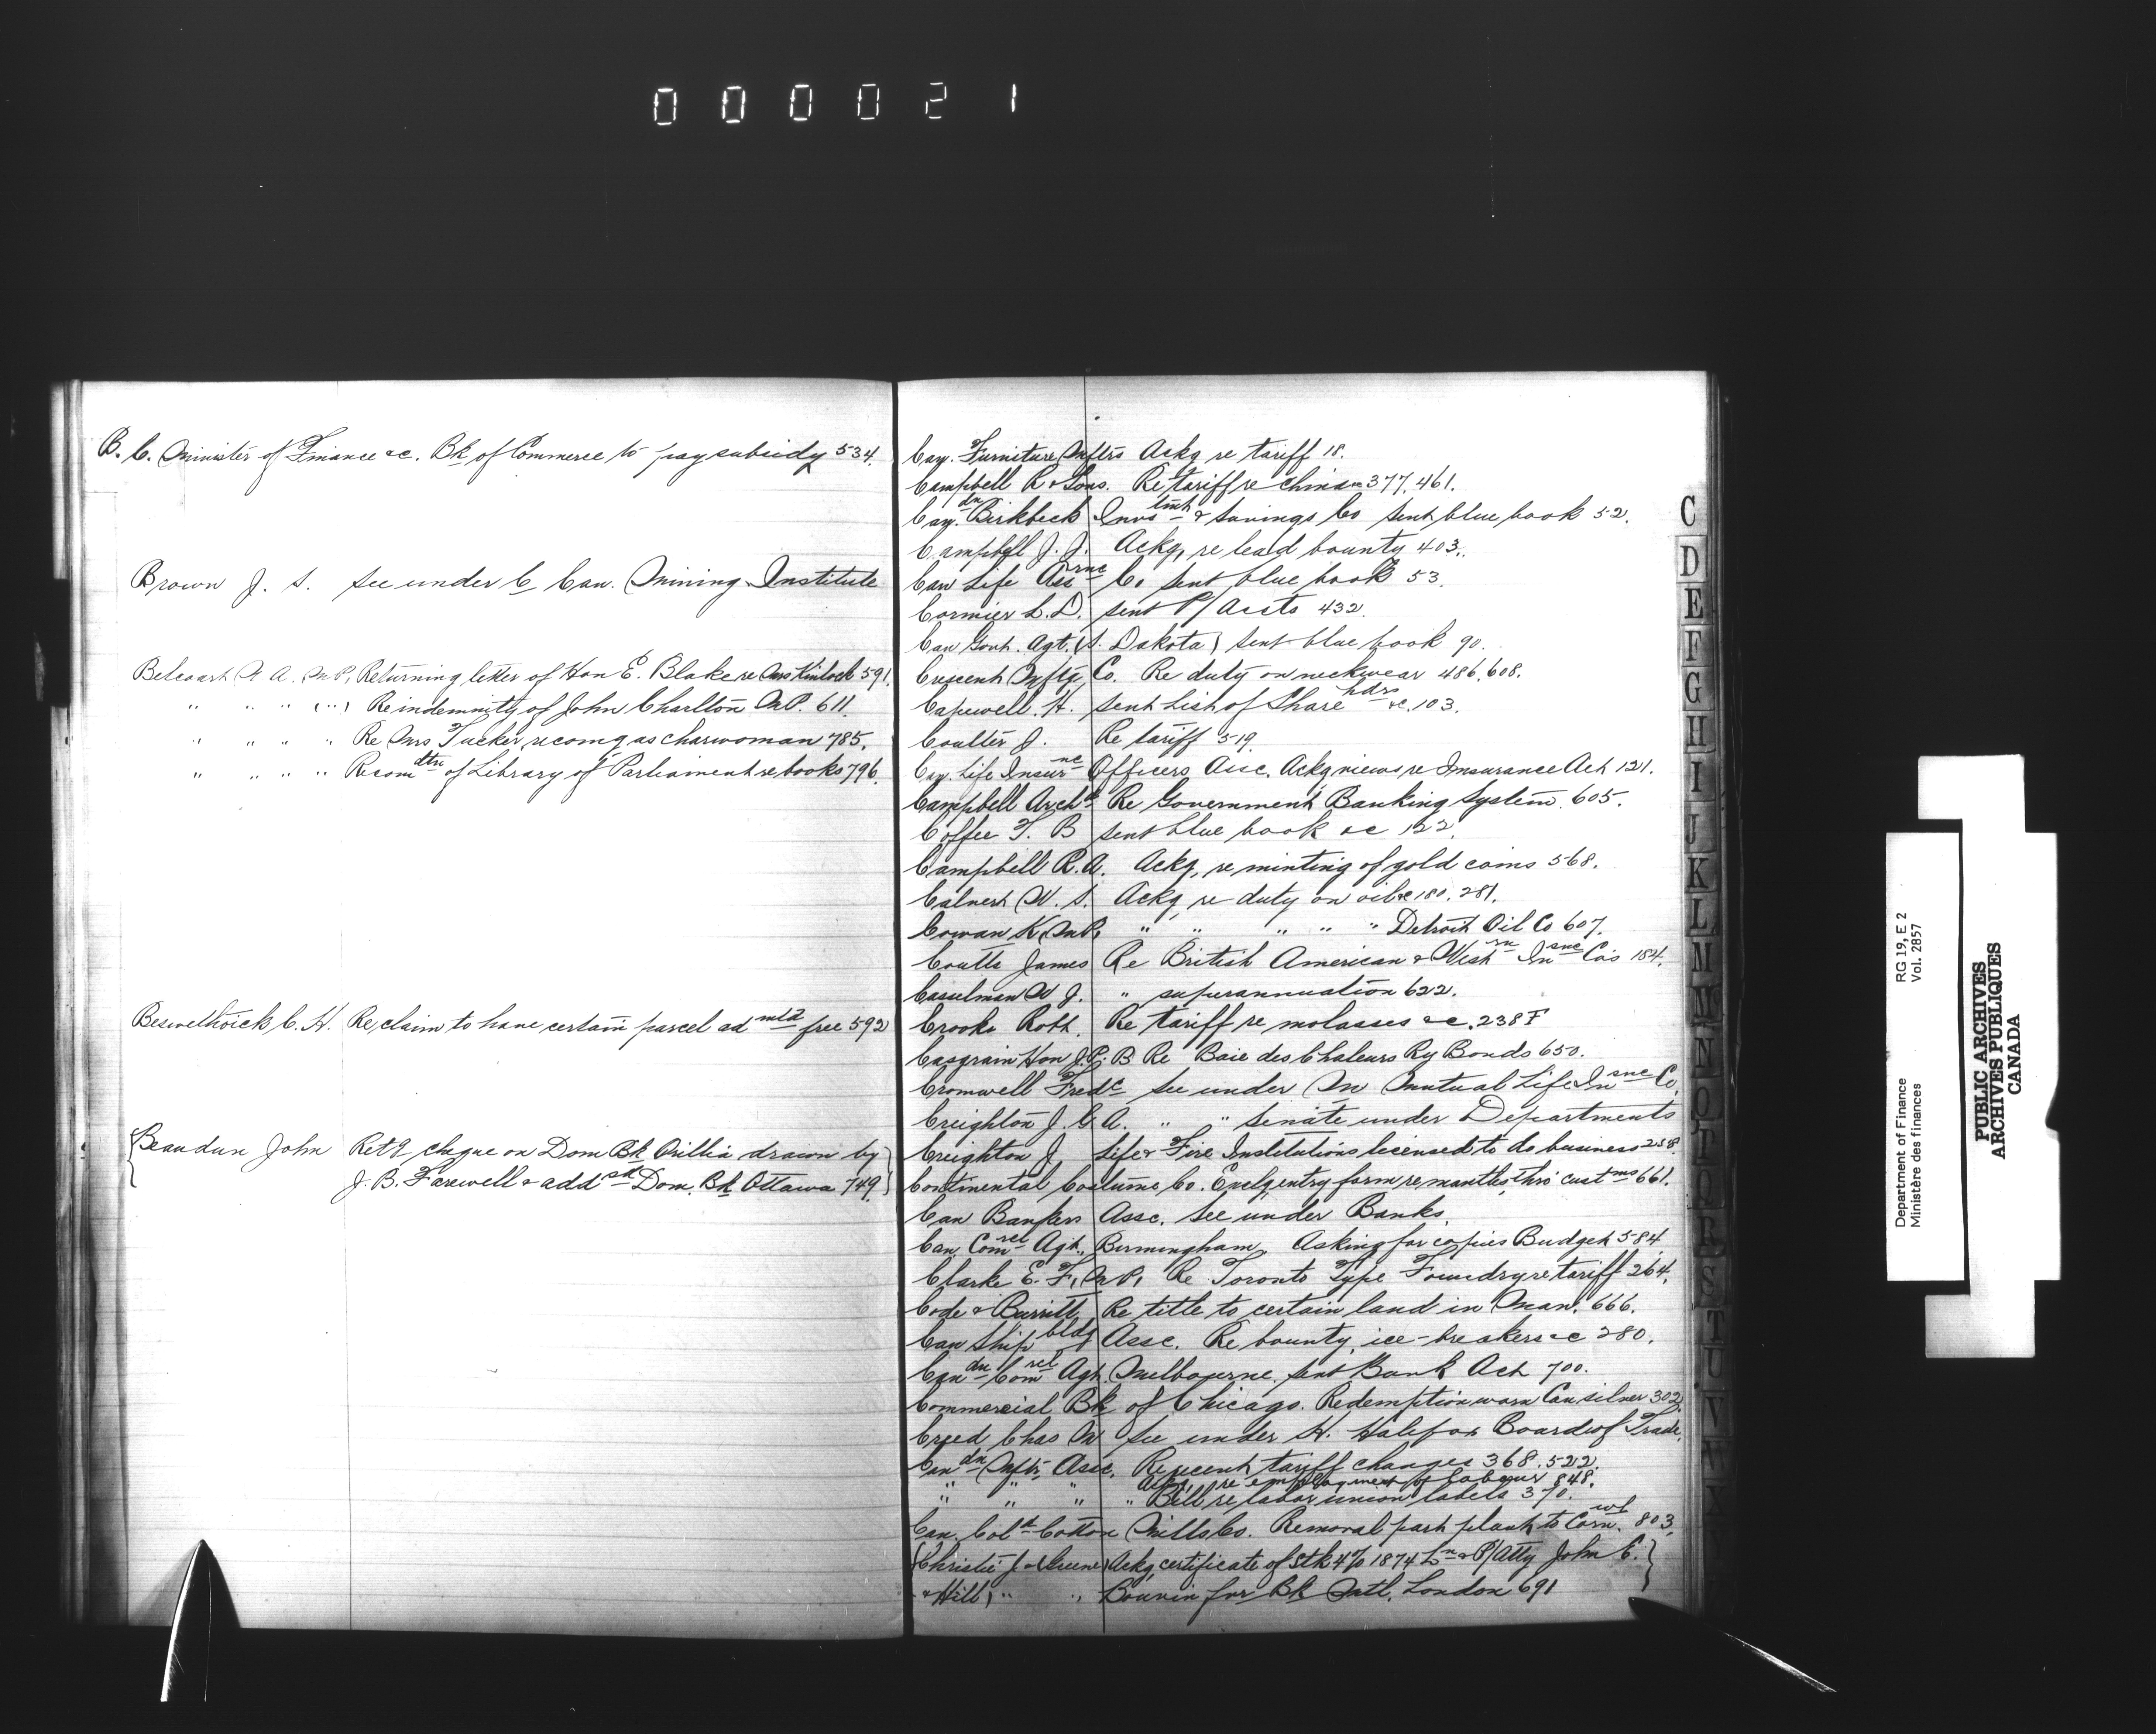 000021
B. C. Minister of Finance &c. Bk of Commerce to pay subsidy 534.
Brown J. S. See under C Can. Mining Institute
Belcourt N. A. M.P. Returning letter of Hon E. Blake re Mrs Kinloch 591.
" " " (") Re indemnity of John Charlton M.P. 611.
" " " " Re Mrs Tucker recomg as charwoman 785.
" " " " Recomdtn of Library of Parliament re books 796.
C. H. Re claim to have certain parcel admtd free 592
Beaudun John Retg cheque on Dom Bk Orillia drawn by
J. B. Farewell & addsd Dom. Bk Ottawa 749.
Can. Furniture Mftrs Ackg re tariff 18.
Campbell R & Sons. Re tariff re china &c 377, 461.
Candn Birkbeck Invstmt & Savings Co sent blue book 52.
Campbell J. J. Ackg, re lead bounty 403.
Can Life Assrnce Co sent blue book 53.
Cormier L. D. sent P/Accts 432.
Can Govt. Agt. (S. Dakota) sent blue book 90.
Crescent Mnftg Co. Re duty on neckwear 486, 608.
Capewell H. sent List of Sharehdrs &c. 103.
Coulter J. Re tariff 519.
Can. Life Insurnce Officers Assc. Ackg views re Insurance Act 121.
Campbell Archd Re Government Banking System. 605.
Coffee T. B sent blue book &c 122.
Campbell R. A. Ackg, re minting of gold coins 568.
Calvert W. S. Ackg, re duty on oil &c 180, 281.
Cowan K, M.P. " " " " " Detroit Oil Co 607.
Coutts James Re British American & Westrn Insnce Cos 184.
Casselman W J. " superannuation 622.
Crooks Robt. Re tariff re molasses &c. 238F
Casgrain Hon J. P. B Re Baie des Chaleurs Ry Bonds 650.
Cromwell Fredc See under M Mutual Life Insnce Co.
Creighton J. G A. " " Senate under Departments
Creighton J. Life & Fire Institutions licensed to do business 258.
Continental Costume Co. Enclg entry form re mantles thro' custms 661.
Can Bankers Assc. See under Banks.
Can. Comrcl Agt., Birmingham. Asking for copies Budget 584.
Clarke E. F, M.P., Re Toronto Type Foundry re tariff 264.
Code & Burritt Re title to certain land in Man. 666.
Can Ship bldg Assc. Re bounty, ice-breakers &c 280.
Candn Comrcl Agt. Melbourne. sent Bank Act 700.
Commercial Bk of Chicago. Redemption worn Can silver 302.
Creed Chas M See under H. Halifax Board of Trade.
Candn Mftrs Assc. Re recent tariff changes 368. 522.
Ackg re employment of labour 848.
" " " " Bill re labor union labels 370.
Can. Cold Cotton Mills Co. Removal part plant to Cornwl. 803.
Christie J. & Ackg certificate of Stk 4% 1874 Ln & P/Atty John E.
& Hill " " for Bk Mtl. London 691
C
D
E
F
G
H
I
J
K
L
M
N
O
R
S
T
U
V
X
Department of Finance
Ministère des finances
RG 19, E 2
Vol. 2857
PUBLIC ARCHIVES
ARCHIVES PUBLIQUES
CANADA